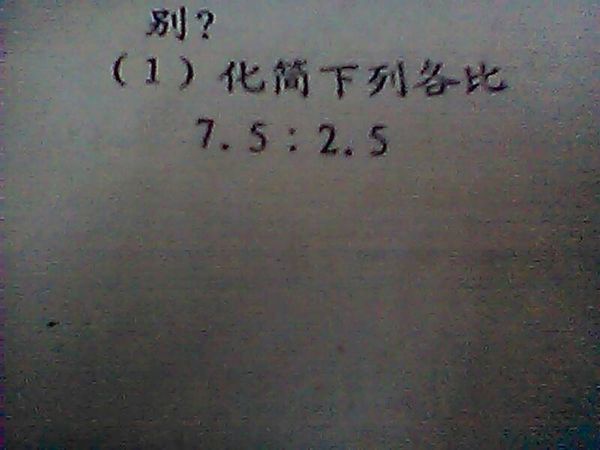 别?
(1)化简下列各比
7.5:2.5